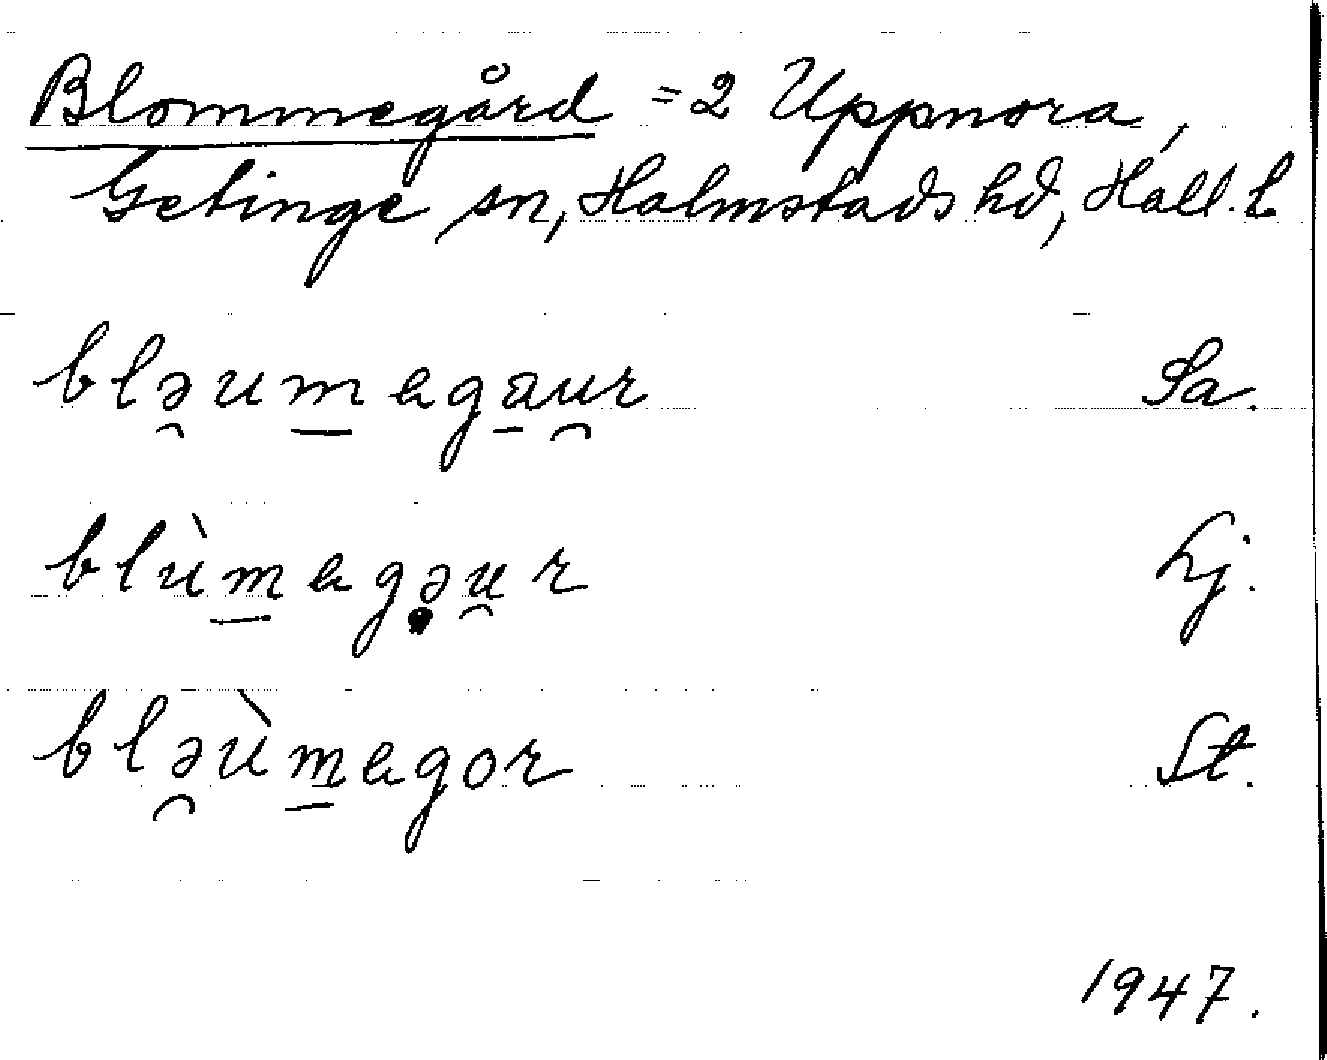 Blommegård = 2 Uppnora,
Getinge sn, Halmstads hd, Hall. l.
blə̯um̲ega̲u̯r Sa.
blùm̲egə̣u̯r Lj.
blə̯ùm̲egor St.
1947.